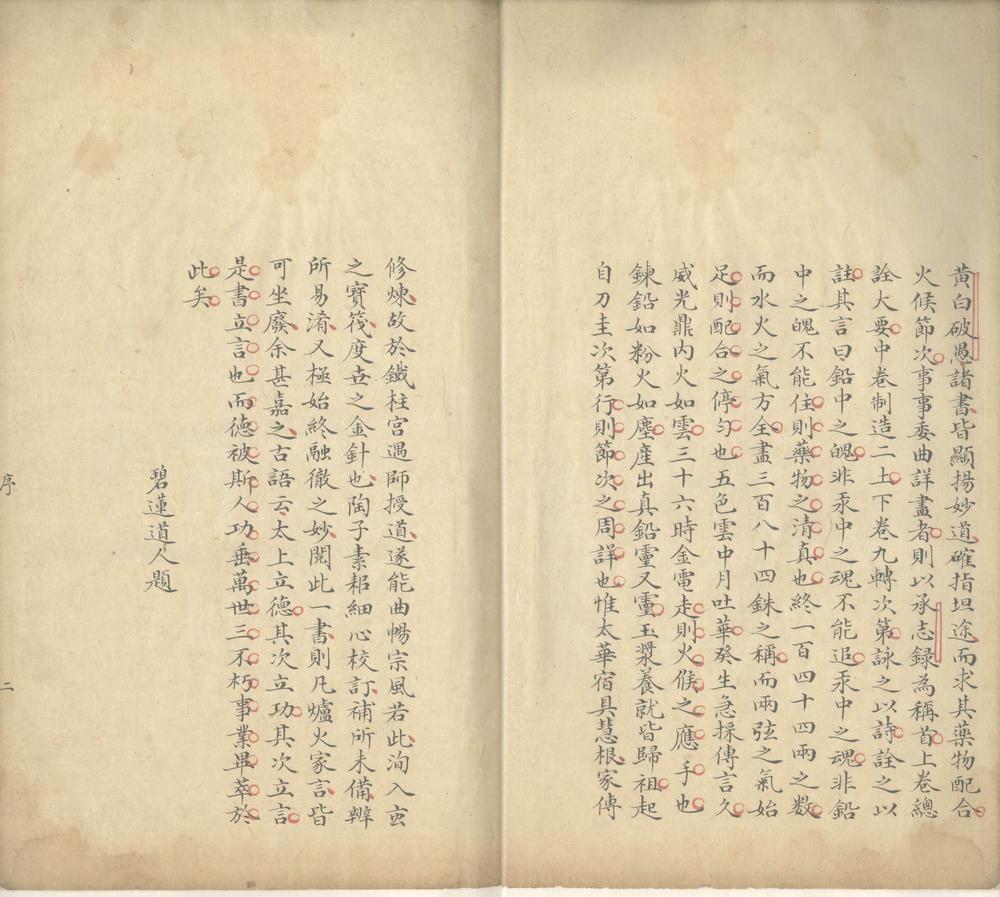 黃白破愚諸書皆顯揚妙道確指坦途而求其藥物配合
火候節次事事委曲詳盡者則以承志錄為稱首上卷總
詮大要中卷制造二土下卷九轉次第詠之以詩詮之以
註其言曰鉛中之魄非汞中之魂不能追汞中之魂非鉛
中之魄不能住則藥物之清真也終一百四十四兩之數
而水火之氣方全盡三百八十四銖之稱而兩弦之氣始
足則配合之停勻也五色雲中月吐華癸生急採傳言久
威光鼎內火如雲三十六時金電走則火候之應手也
鍊鉛如粉火如塵產出真鉛靈又靈玉漿養就皆歸祖起
自刀圭次第行則節次之周詳也惟太華宿具慧根家傳
修煉故於鐵柱宮遇師授道遂能曲暢宗風若此洵入玄
之寶筏度世之金針也陶子素耜細心校訂補所未備辨
所易淆又極始終融徹之妙閱此一書則凡爐火家言皆
可坐廢余甚嘉之古語云太上立德其次立功其次立言
是書立言也而德被斯人功垂萬世三不朽事業畢萃於
此矣
碧蓮道人題
序
二